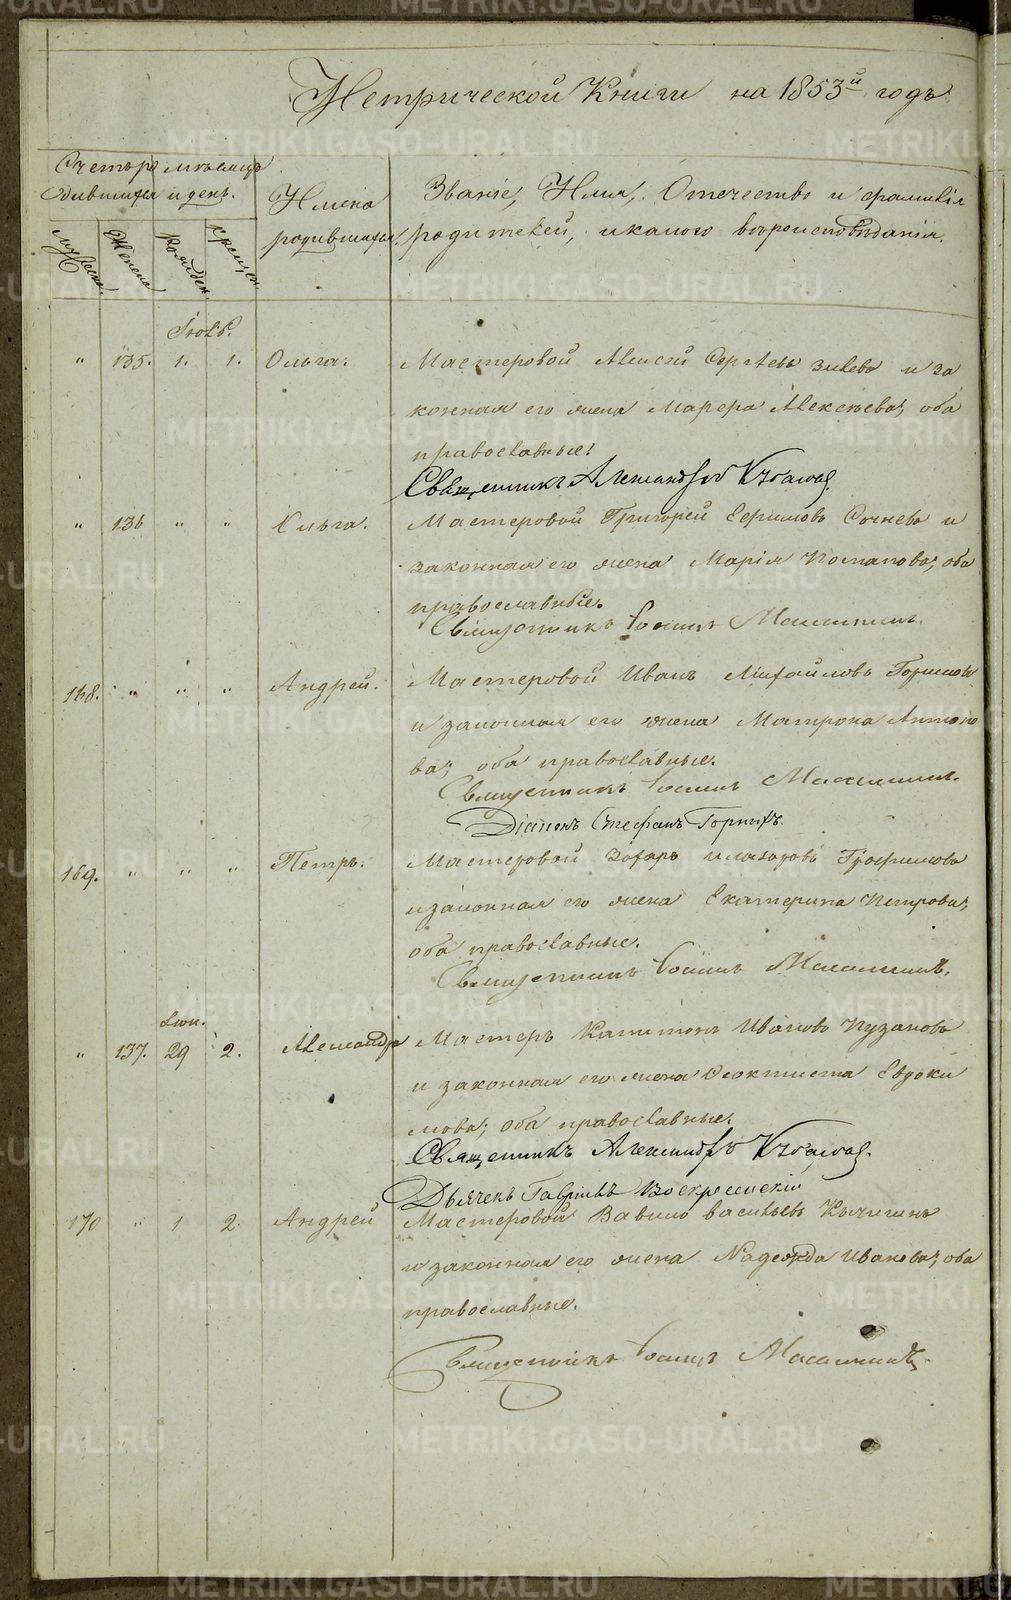 Метрической Книги на 1853й годъ
Счетъ родившихся
мѣсяцъ и день.
Имена родившихся.
Званіе, Имя, Отечество и фамилія
родителей, и какого вѣроисповѣданія.
Мужеска.
Женска
Рожден
Крещен
Іюль.
" 135. 1. 1. Ольга. Мастеровой Алексѣй Сергѣевъ и за
конная его жена Марѳа Алексѣева; оба
православные.
Священникъ Александръ
" 136 " " Ольга. Мастеровой Григорей Ефимовъ Сочневъ и
законная его жена Марія Потапова; оба
православные.
Священникъ Іоаннъ
168. " " " Андрей. Мастеровой Иванъ Михайловъ
и законная его жена Матрона Антоно
ва; оба православные.
Священникъ Іоаннъ
Діаконъ Стефанъ Горныхъ.
169. " " " Петръ. Мастеровой Трофимовъ
и законная его жена Екатерина Петрова;
оба православные.
Священникъ Іоаннъ
Іюн.
" 137. 29 2. Александра Мастеръ Капитонъ Ивановъ Пузановъ
и законная его жена Ѳеоктиста Евдоки
мова; оба православные.
Священникъ Александръ
Дьячекъ Гавріилъ Воскресенскій
170 " 1 2. Андрей Мастеровой Вавило Васильевъ
и законная его жена Надежда Иванова; оба
православные.
Священникъ Іоаннъ
METRIKI.GASO-URAL.RU